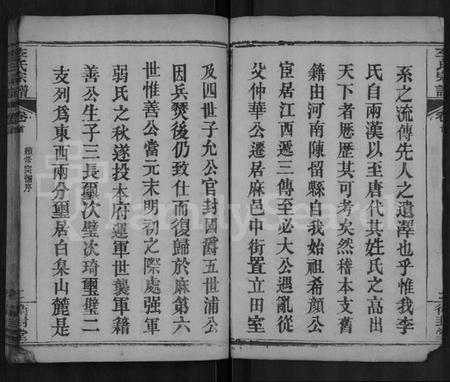 系之流傳先人之遺澤也乎惟我李
氏自兩漢以至唐代其姓氏之高出
天下者歷歷其可考矣然稽本支舊
籍由河南陳留縣自我始祖希顏公
宦居江西遞三傳至必大公遇亂從
父仲華公遷居麻邑中街置立田室
及四世子允公官封國爵五世浦公
因兵燹後仍致仕而復歸於麻第六
世惟善公當元末明初之際處強軍
弱民之秋遂投本府運軍世襲軍籍
善公生子三長璽次璧次琦璽璧二
支列為東西兩分璽居白臬山麓是
李氏宗譜
卷首
續修宗譜序
FamilySearch